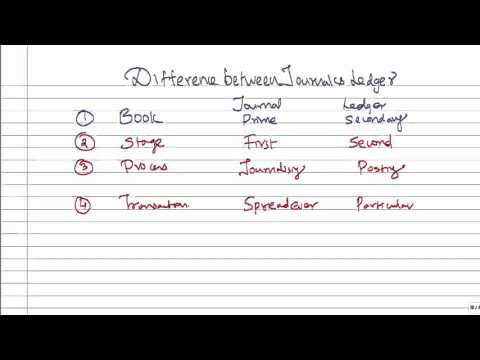 Difference between Journal & Ledger
Journal Ledger
1 Book Prime Secondary
2 Stage First Second
3 Process Journalising Posting
4 Transaction Spreadover Particular